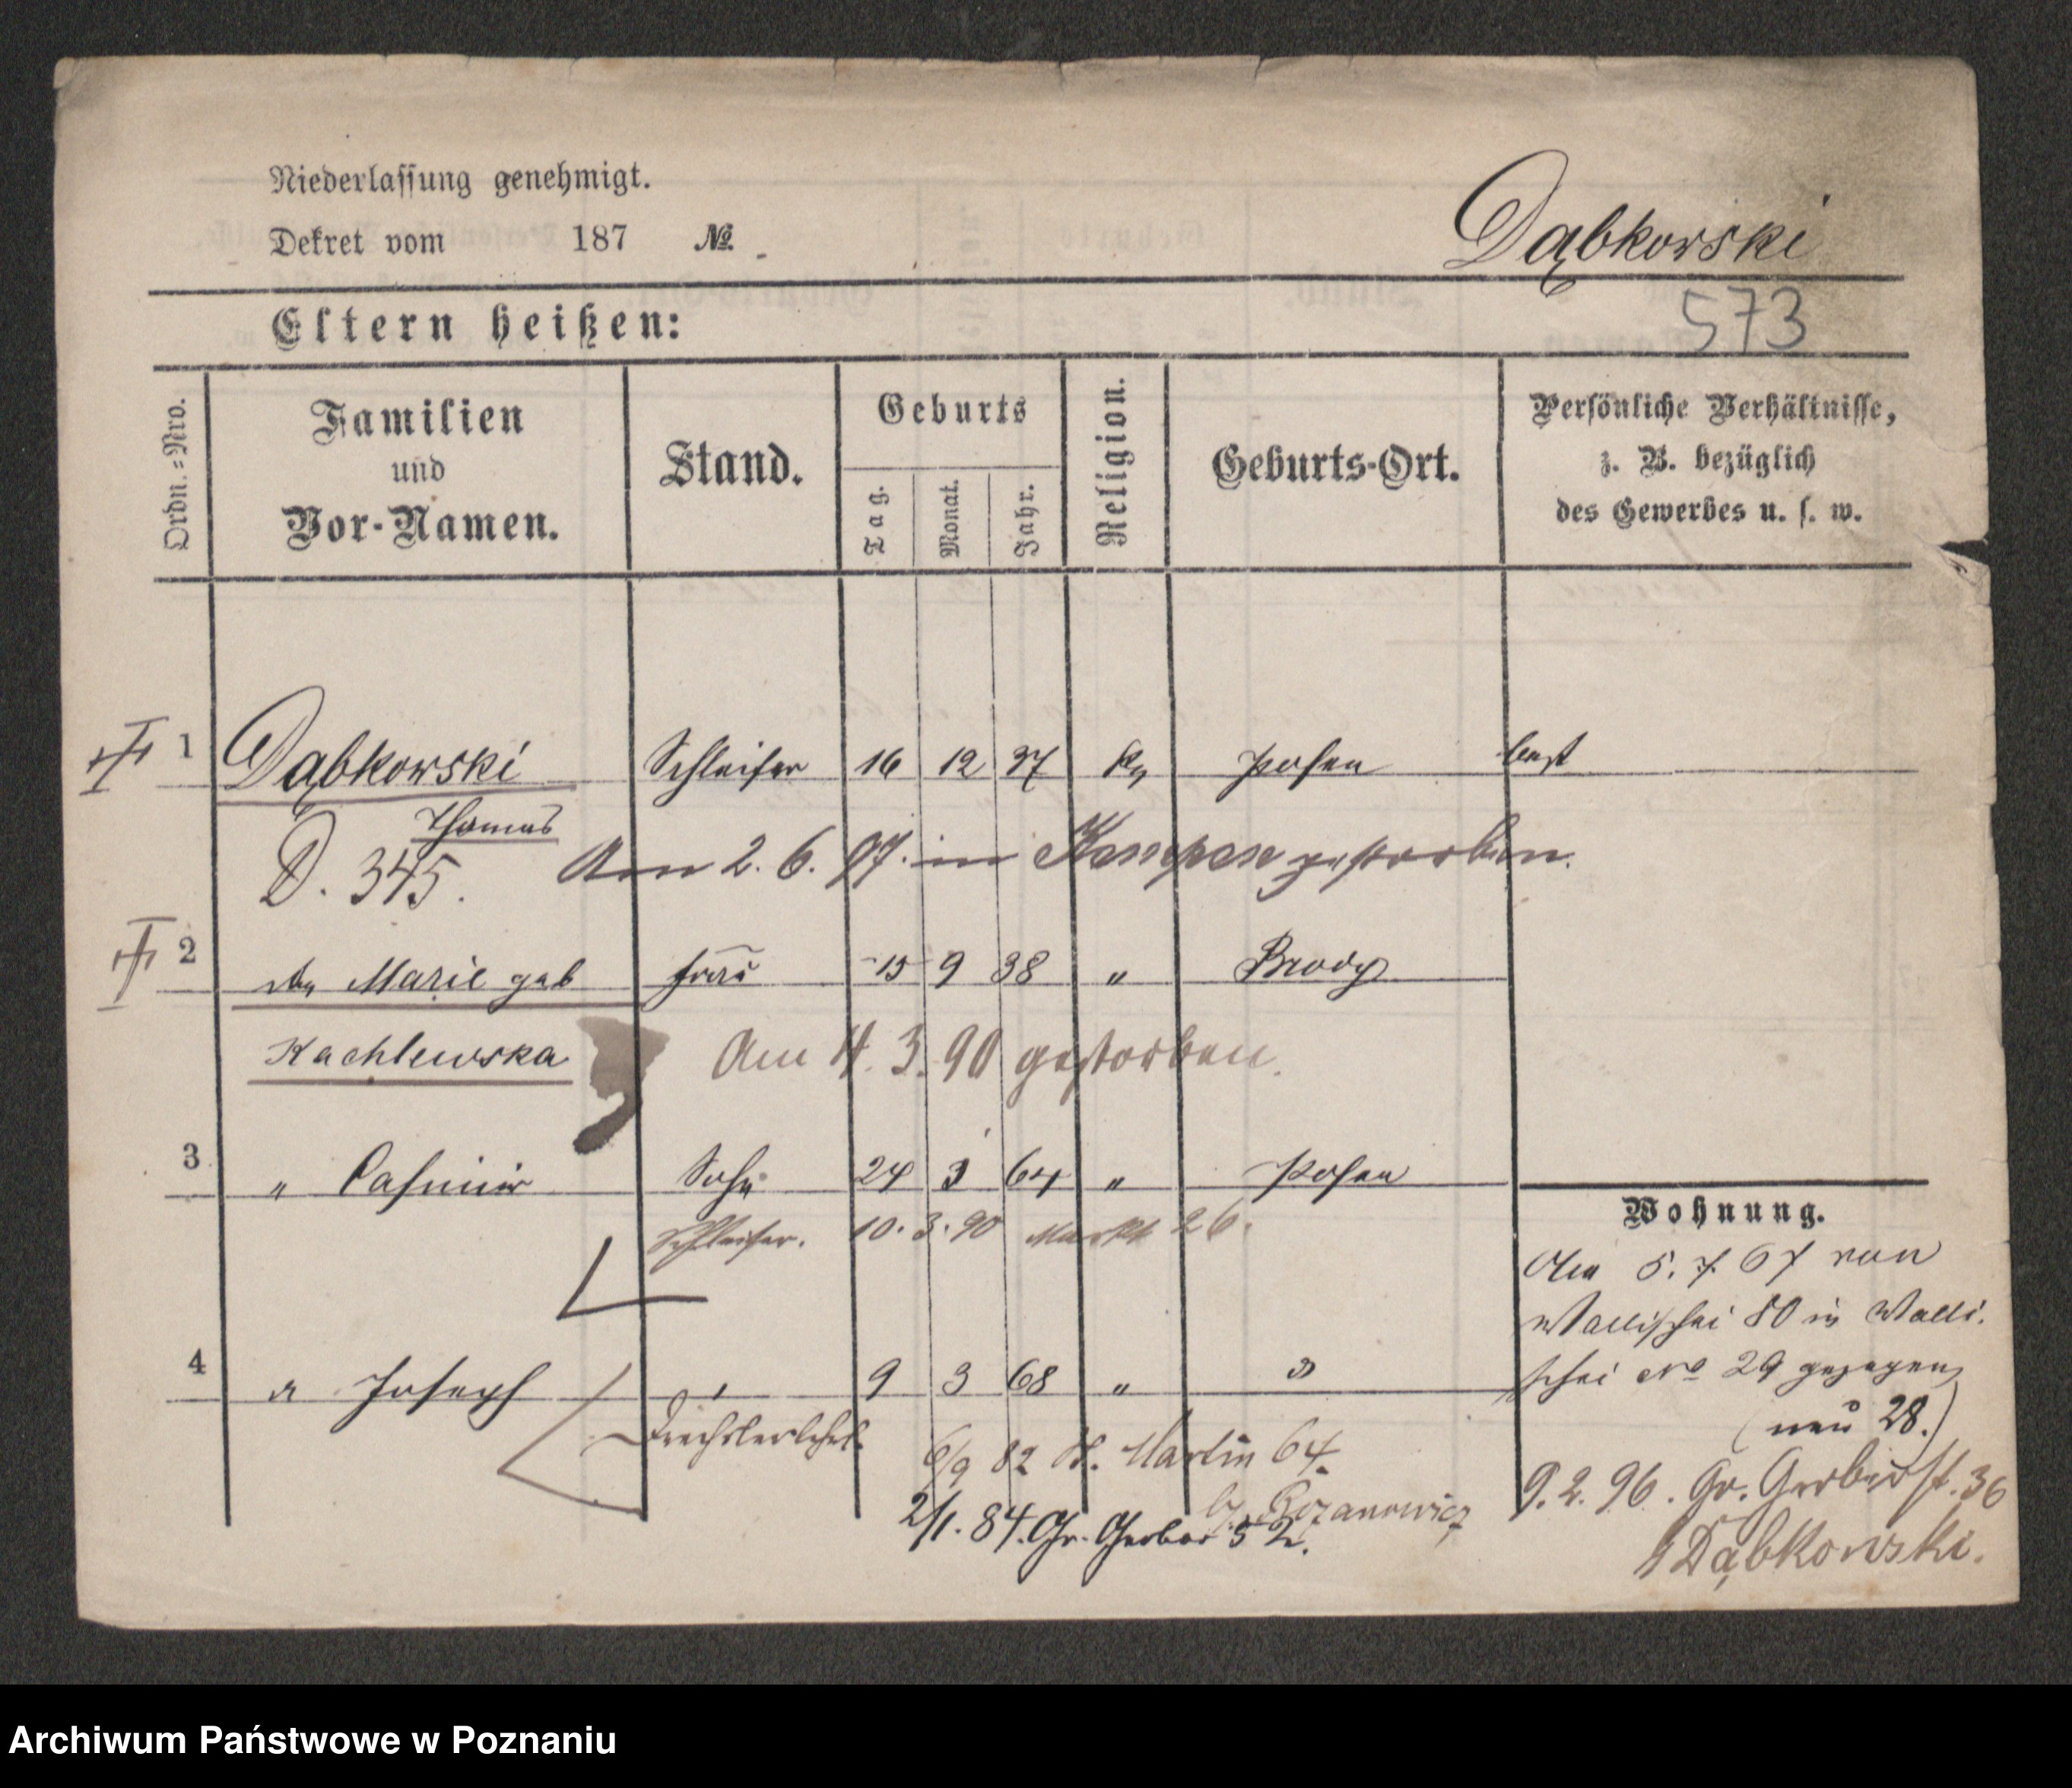 Niederlassung genehmigt.
Dekret vom 187 №.
Dąbkowski
573
Eltern heißen:
Ordn.=Nro.
Familien
und
Vor-Namen.
Stand.
Geburts
Tag.
Monat.
Jahr.
Religion.
Geburts-Ort.
Persönliche Verhältnisse,
z. B. bezüglich
des Gewerbes u. s. w.
1 Dąbkowski Schleifer 16 12 37 k Posen
Thomas
D. 345. Am 2. 6. 97. in Kempen gestorben.
2 Marie geb Frau 15 9 38 " Brody
Kachlewska Am 4. 3. 90 gestorben.
3 " Casimir Sohn 24 3 64 " Posen
Schleifer. 10. 3. 90 Markt 26.
Wohnung.
Am 5. 7. 67 von
Wallischei 80 in Walli-
schei No 29 gezogen
(neu 28.)
4 " Joseph " 9 3 68 " "
Drechslerlehrl.
6/9 82 St. Martin 64.
2/1. 84. Gr. Gerber 52.
9. 2. 96. Gr. Gerberst. 36
Dąbkowski.
Archiwum Państwowe w Poznaniu